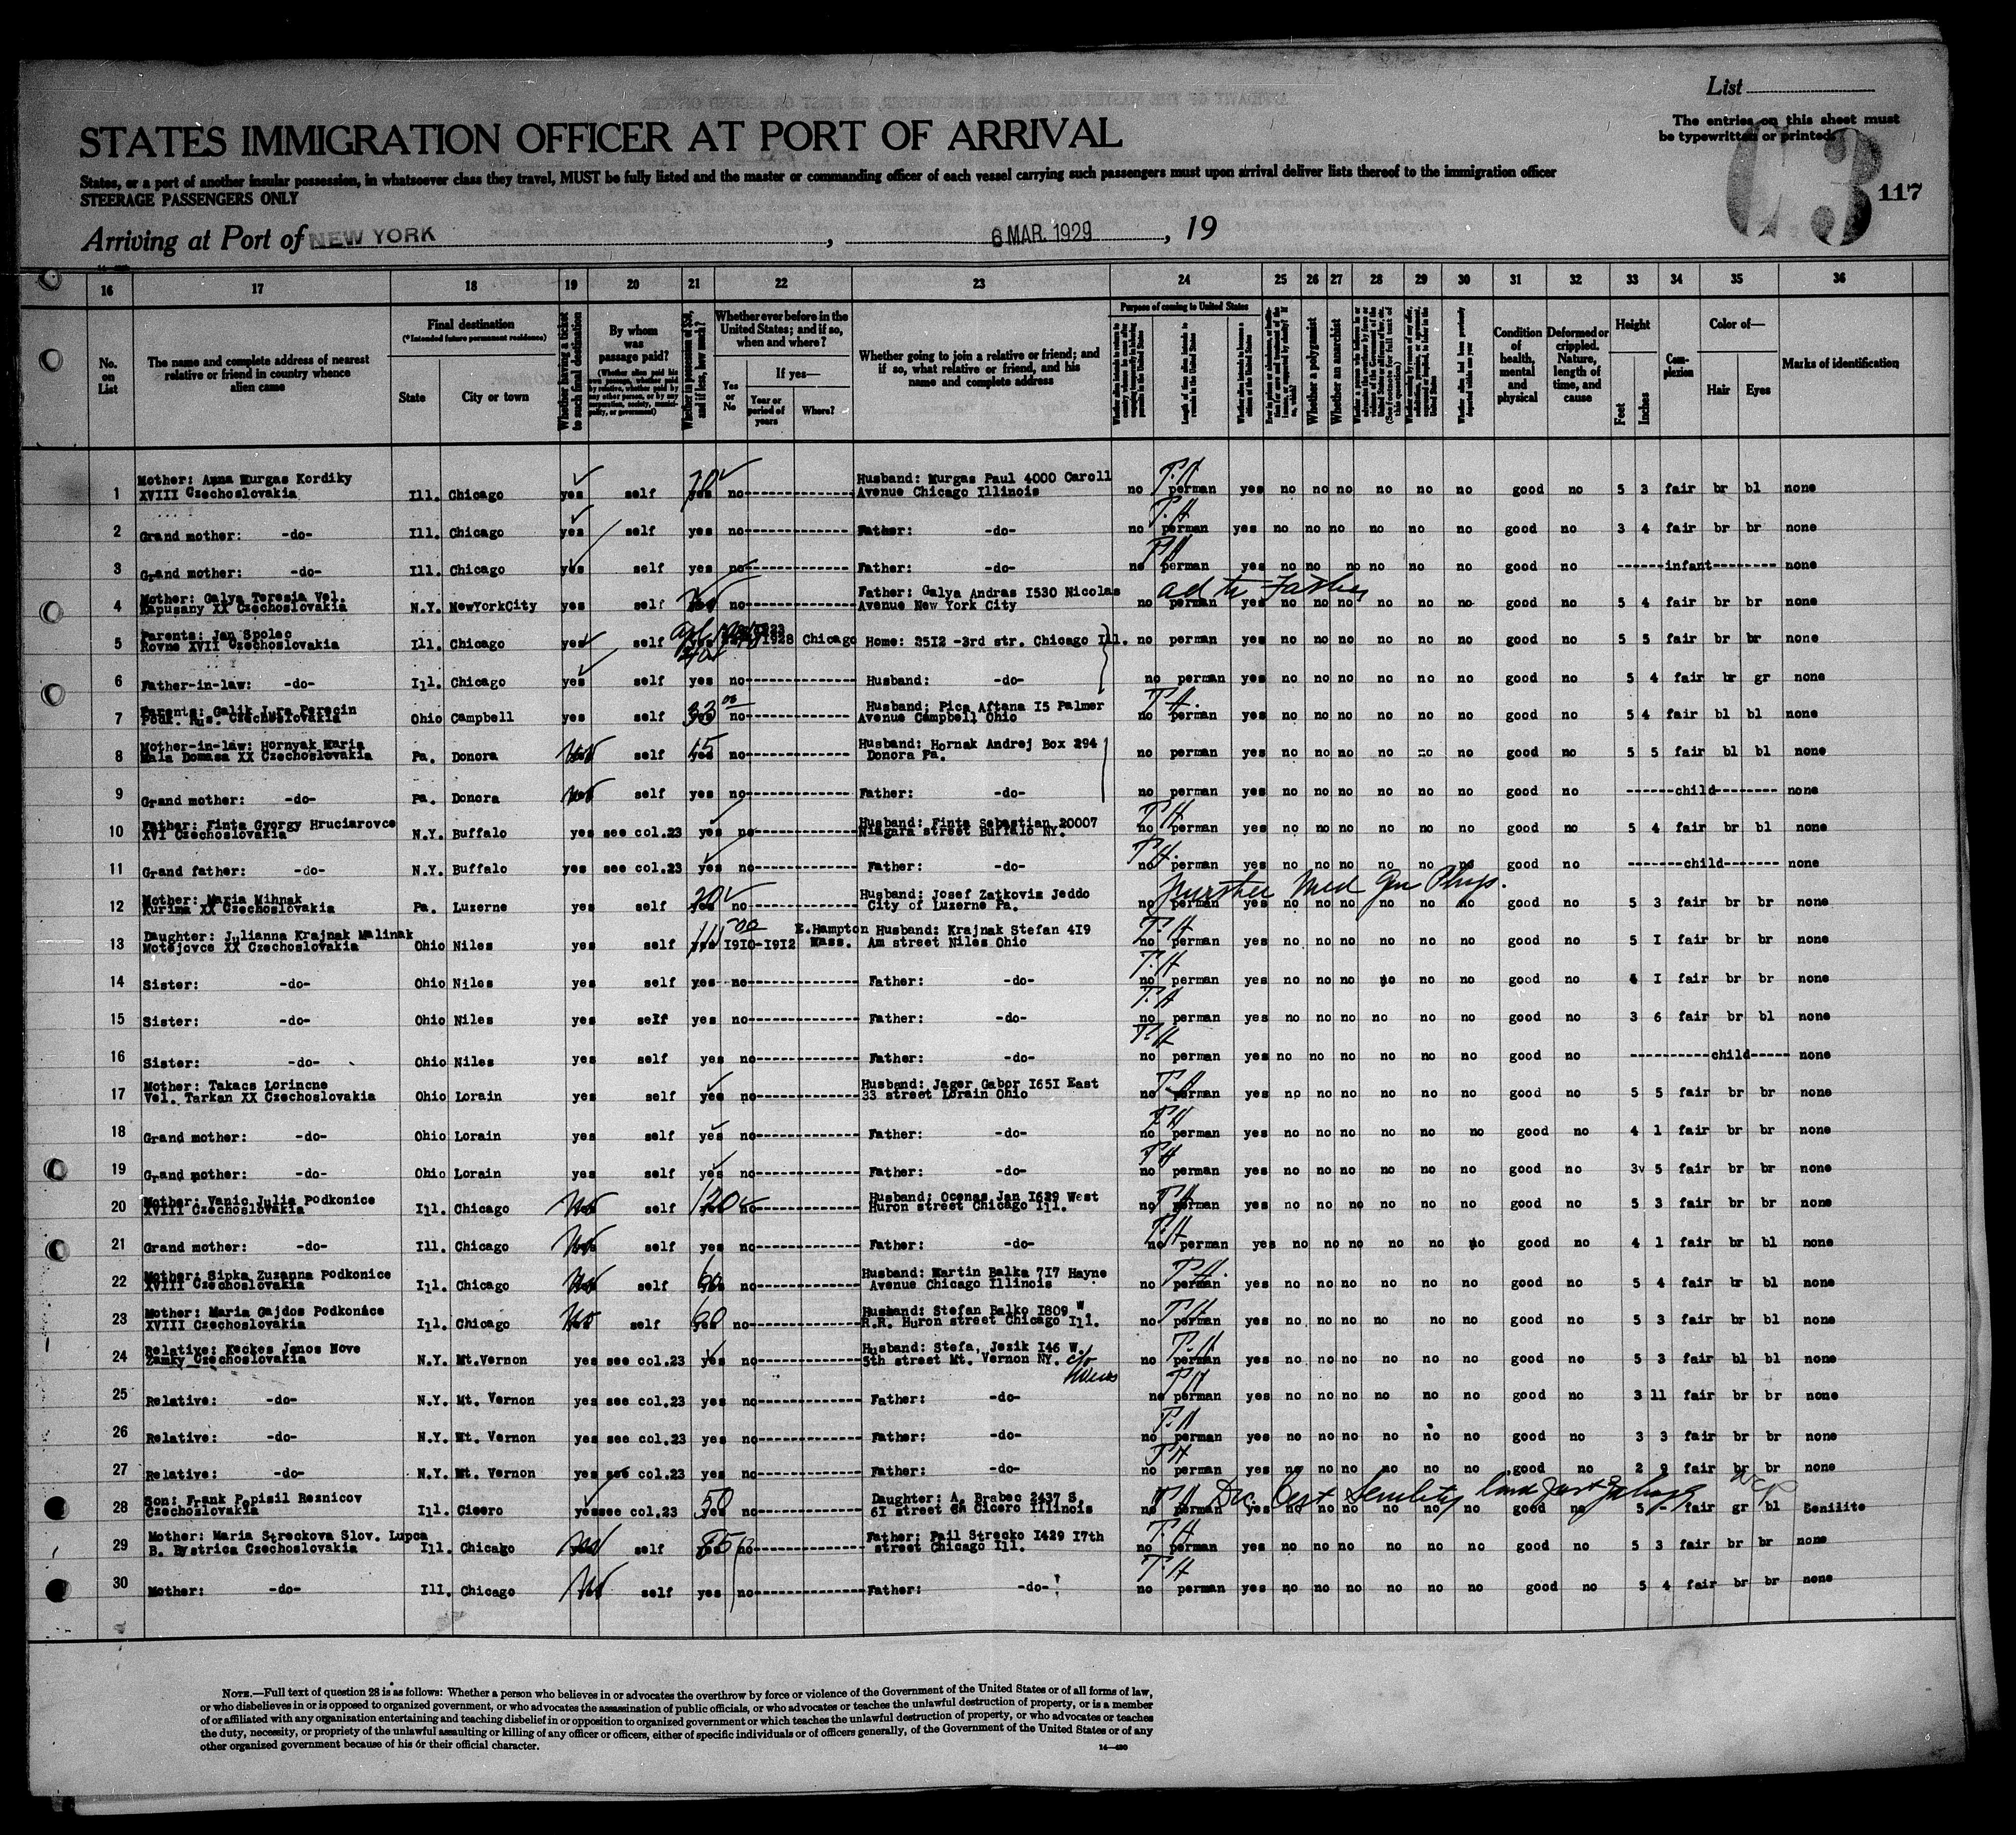 List
The entries on this sheet must
be typewritten or printed.
STATES IMMIGRATION OFFICER AT PORT OF ARRIVAL
States, or a port of another insular possession, in whatsoever class they travel, MUST be fully listed and the master or commanding officer of each vessel carrying such passengers must upon arrival deliver lists thereof to the immigration officer
STEERAGE PASSENGERS ONLY
117
Arriving at Port of NEW YORK, 6 MAR. 1929, 19
16 17 18 19 20 21 22 23 24 25 26 27 28 29 30 31 32 33 34 35 36
No. on List
The name and complete address of nearest relative or friend in country whence alien came
Final destination
(*Intended future permanent residence)
State City or town
Whether having a ticket to such final destination
By whom was passage paid?
Whether ever before in the United States; and if so, when and where?
Yes or No
If yes—
Year or period of years
Where?
Whether going to join a relative or friend; and if so, what relative or friend, and his name and complete address
Purpose of coming to United States
Whether a polygamist
Whether an anarchist
Condition of health, mental and physical
Deformed or crippled. Nature, length of time, and cause
Height
Feet Inches
Complexion
Color of—
Hair Eyes
Marks of identification
1 Mother: Anna Murgas Kordiky XVIII Czechoslovakia Ill. Chicago yes self yes no Husband: Murgas Paul 4000 Caroll Avenue Chicago Illinois no perman yes no no no no no no good no 5 3 fair br bl none
2 Grand mother: -do- Ill. Chicago yes self yes no Father: -do- no perman yes no no no no no no good no 3 4 fair br br none
3 Grand mother: -do- Ill. Chicago yes self yes no Father: -do- no perman yes no no no no no no good no infant none
4 Mother: Galya Teresia Vel. Kapusany XX Czechoslovakia N.Y. NewYorkCity yes self no Father: Galya Andras I530 Nicolas Avenue New York City no perman yes no no no no no no good no 5 4 fair br br none
ad to Father
5 Parents: Jan Spolec Rovne XVII Czechoslovakia Ill. Chicago yes self yes 1928 Chicago Home: 2512 -3rd str. Chicago Ill. no perman yes no no no no no no good no 5 5 fair br br none
6 Father-in-law: -do- Ill. Chicago yes self yes no Husband: -do- no perman yes no no no no no no good no 5 4 fair br gr none
7 Parents: Galik Jura Perecin Podk. Rus. Czechoslovakia Ohio Campbell yes self 33 no Husband: Pica Aftana I5 Palmer Avenue Campbell Ohio no perman yes no no no no no no good no 5 4 fair bl bl none
8 Mother-in-law: Hornyak Maria Mala Domasa XX Czechoslovakia Pa. Donora self 15 no Husband: Hornak Andrej Box 294 Donora Pa. no perman yes no no no no no no good no 5 5 fair bl bl none
9 Grand mother: -do- Pa. Donora self yes no Father: -do- no perman yes no no no no no no good no child none
10 Father: Finta Gyorgy Hruciarovce XVI Czechoslovakia N.Y. Buffalo yes see col.23 yes no Husband: Finta Sebastian 20007 Niagara street Buffalo NY. no perman yes no no no no no no good no 5 4 fair br bl none
11 Grand father: -do- N.Y. Buffalo yes see col.23 yes no Father: -do- no perman yes no no no no no no good no child none
12 Mother: Maria Mihnak Kurima XX Czechoslovakia Pa. Luzerne yes self 20 no Husband: Josef Zatkovia Jeddo City of Luzerne Pa. no perman yes no no no no no no good no 5 3 fair br br none
13 Daughter: Julianna Krajnak Malinak Motejovce XX Czechoslovakia Ohio Niles yes self yes I9I0-I9I2 E.Hampton Mass. Husband: Krajnak Stefan 4I9 Am street Niles Ohio no perman yes no no no no no no good no 5 I fair br br none
14 Sister: -do- Ohio Niles yes self yes no Father: -do- no perman yes no no no no no no good no 4 I fair br br none
15 Sister: -do- Ohio Niles yes self yes no Father: -do- no perman yes no no no no no no good no 3 6 fair br bl none
16 Sister: -do- Ohio Niles yes self yes no Father: -do- no perman yes no no no no no no good no child none
17 Mother: Takacs Lorincne Vel. Tarkan XX Czechoslovakia Ohio Lorain yes self yes no Husband: Jager Gabor I65I East 33 street Lorain Ohio no perman yes no no no no no no good no 5 5 fair br br none
18 Grand mother: -do- Ohio Lorain yes self yes no Father: -do- no perman yes no no no no no no good no 4 1 fair br br none
19 Grand mother: -do- Ohio Lorain yes self yes no Father: -do- no perman yes no no no no no no good no 3 5 fair br br none
20 Mother: Vanic Julia Podkonice XVIII Czechoslovakia Ill. Chicago self 120 no Husband: Ocenas Jan I629 West Huron street Chicago Ill. no perman yes no no no no no no good no 5 3 fair br bl none
21 Grand mother: -do- Ill. Chicago self yes no Father: -do- no perman yes no no no no no no good no 4 1 fair br bl none
22 Mother: Sipka Zuzanna Podkonice XVIII Czechoslovakia Ill. Chicago self no Husband: Martin Balka 7I7 Hayne Avenue Chicago Illinois no perman yes no no no no no no good no 5 4 fair br bl none
23 Mother: Maria Gajdos Podkonice XVIII Czechoslovakia Ill. Chicago self 60 no Husband: Stefan Balko I809 W R.R. Huron street Chicago Ill. no perman yes no no no no no no good no 5 3 fair br bl none
24 Relative: Keckes Janos Nove Zamky Czechoslovakia N.Y. Mt.Vernon yes see col.23 yes no Husband: Stefa, Jezik I46 W. 5th street Mt. Vernon NY. no perman yes no no no no no no good no 5 3 fair bl bl none
25 Relative: -do- N.Y. Mt. Vernon yes see col.23 yes no Father: -do- no perman yes no no no no no no good no 3 11 fair br br none
26 Relative: -do- N.Y. Mt. Vernon yes see col.23 yes no Father: -do- no perman yes no no no no no no good no 3 3 fair br br none
27 Relative: -do- N.Y. Mt. Vernon yes see col.23 yes no Father: -do- no perman yes no no no no no no good no 2 9 fair br br none
28 Son: Frank Popisil Reznicov Czechoslovakia Ill. Cicero yes see col.23 50 no Daughter: A. Brabec 2437 S. 6I street Cicero Illinois no perman yes no no no no no no good no 5 fair gr bl Senilite
29 Mother: Maria Streckova Slov. Lupca B. Bystrica Czechoslovakia Ill. Chicago self no Father: Pail Strecko I429 I7th street Chicago Ill. no perman yes no no no no no no good no 5 3 fair br br none
30 Mother: -do- Ill. Chicago self yes no Father: -do- no perman yes no no no no no no good no 5 4 fair br br none
NOTE.—Full text of question 28 is as follows: Whether a person who believes in or advocates the overthrow by force or violence of the Government of the United States or of all forms of law,
or who disbelieves in or is opposed to organized government, or who advocates the assassination of public officials, or who advocates or teaches the unlawful destruction of property, or is a member
of or affiliated with any organization entertaining and teaching disbelief in or opposition to organized government or which teaches the unlawful destruction of property, or who advocates or teaches
the duty, necessity, or propriety of the unlawful assaulting or killing of any officer or officers, either of specific individuals or of officers generally, of the Government of the United States or of any
other organized government because of his or their official character.